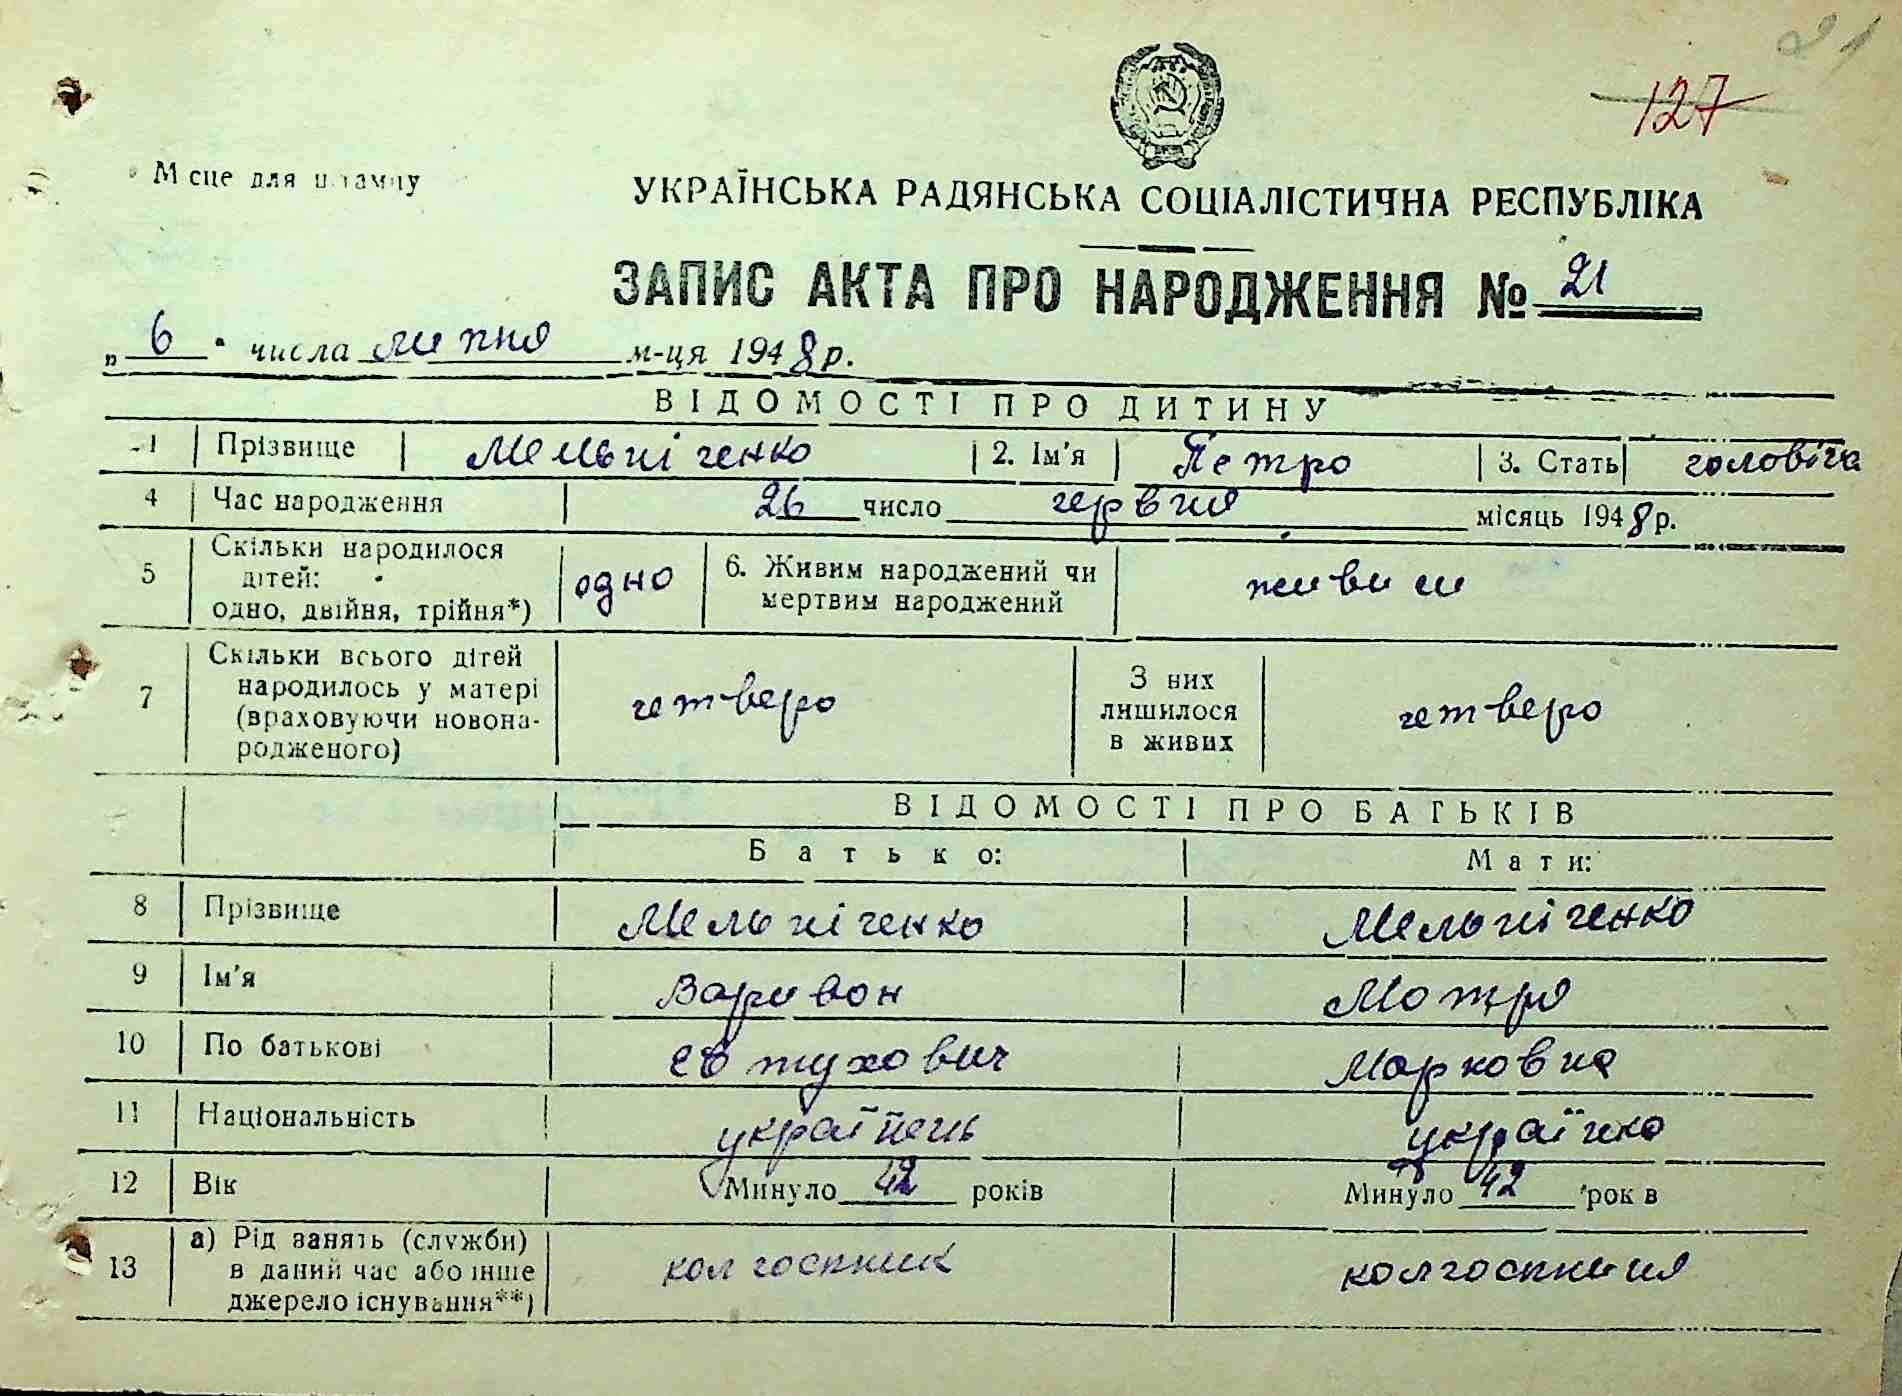 21
127
Місце для штампу
УКРАЇНСЬКА РАДЯНСЬКА СОЦІАЛІСТИЧНА РЕСПУБЛІКА
ЗАПИС АКТА ПРО НАРОДЖЕННЯ № 21
„ 6 " числа липня м-ця 1948 р.
ВІДОМОСТІ ПРО ДИТИНУ
1 Прізвище Мельніченко 2. Ім'я Петро 3. Стать чоловіча
4 Час народження 26 число червня місяць 1948 р.
5 Скільки народилося дітей: одно, двійня, трійня*) одно 6. Живим народжений чи мертвим народжений живим
7 Скільки всього дітей народилось у матері (враховуючи новонародженого) четверо З них лишилося в живих четверо
ВІДОМОСТІ ПРО БАТЬКІВ
Батько: Мати:
8 Прізвище Мельніченко Мельніченко
9 Ім'я Варивон Мотря
10 По батькові Євтухович Марковна
11 Національність українець українка
12 Вік Минуло 42 років Минуло 42 років
13 а) Рід занять (служби) в даний час або інше джерело існування**) колгоспник колгоспниця